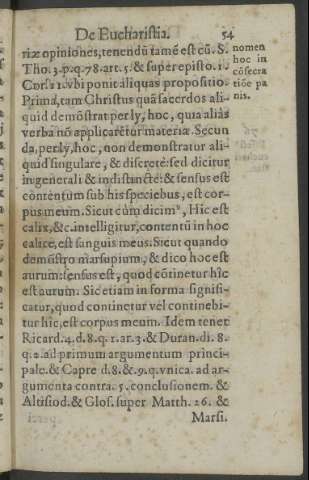 De Eucharistia. 54
riæ opiniones, tenendũ tamẽ est cũ. S.
Tho. 3. p. q. 78. art. 5. & super episto. 1.
Cor. 11. vbi ponit aliquas propositio.
Prima, tam Christus quã sacerdos ali-
quid demõstrat per ly, hoc, quia aliàs
verba nõ applicarẽtur materiæ. Secun
da, per ly, hoc, non demonstratur ali-
quid singulare, & discretè: sed dicitur
in generali & indistinctè: & sensus est
contentum sub his speciebus, est cor-
pus meum. Sicut cùm dicimꝰ, Hic est
calix, &c. intelligitur, contentũ in hoc
calice, est sanguis meus. Sicut quando
demõstro marsupium, & dico hoc est
aurum: sensus est, quod cõtinetur hîc
est aurum. Sic etiam in forma signifi-
catur, quod continetur vel continebi-
tur hîc, est corpus meum. Idem tenet
Ricard. 4. d. 8. q. 1. ar. 3. & Duran. di. 8.
q. 2. ad primum argumentum princi-
pale. & Capre d. 8. &. 9. q. vnica. ad ar-
gumenta contra. 5. conclusionem. &
Altisiod. & Glos. super Matth. 26. &
Marsi.
nomen
hoc in
cõsecra
tiõe pa
nis.